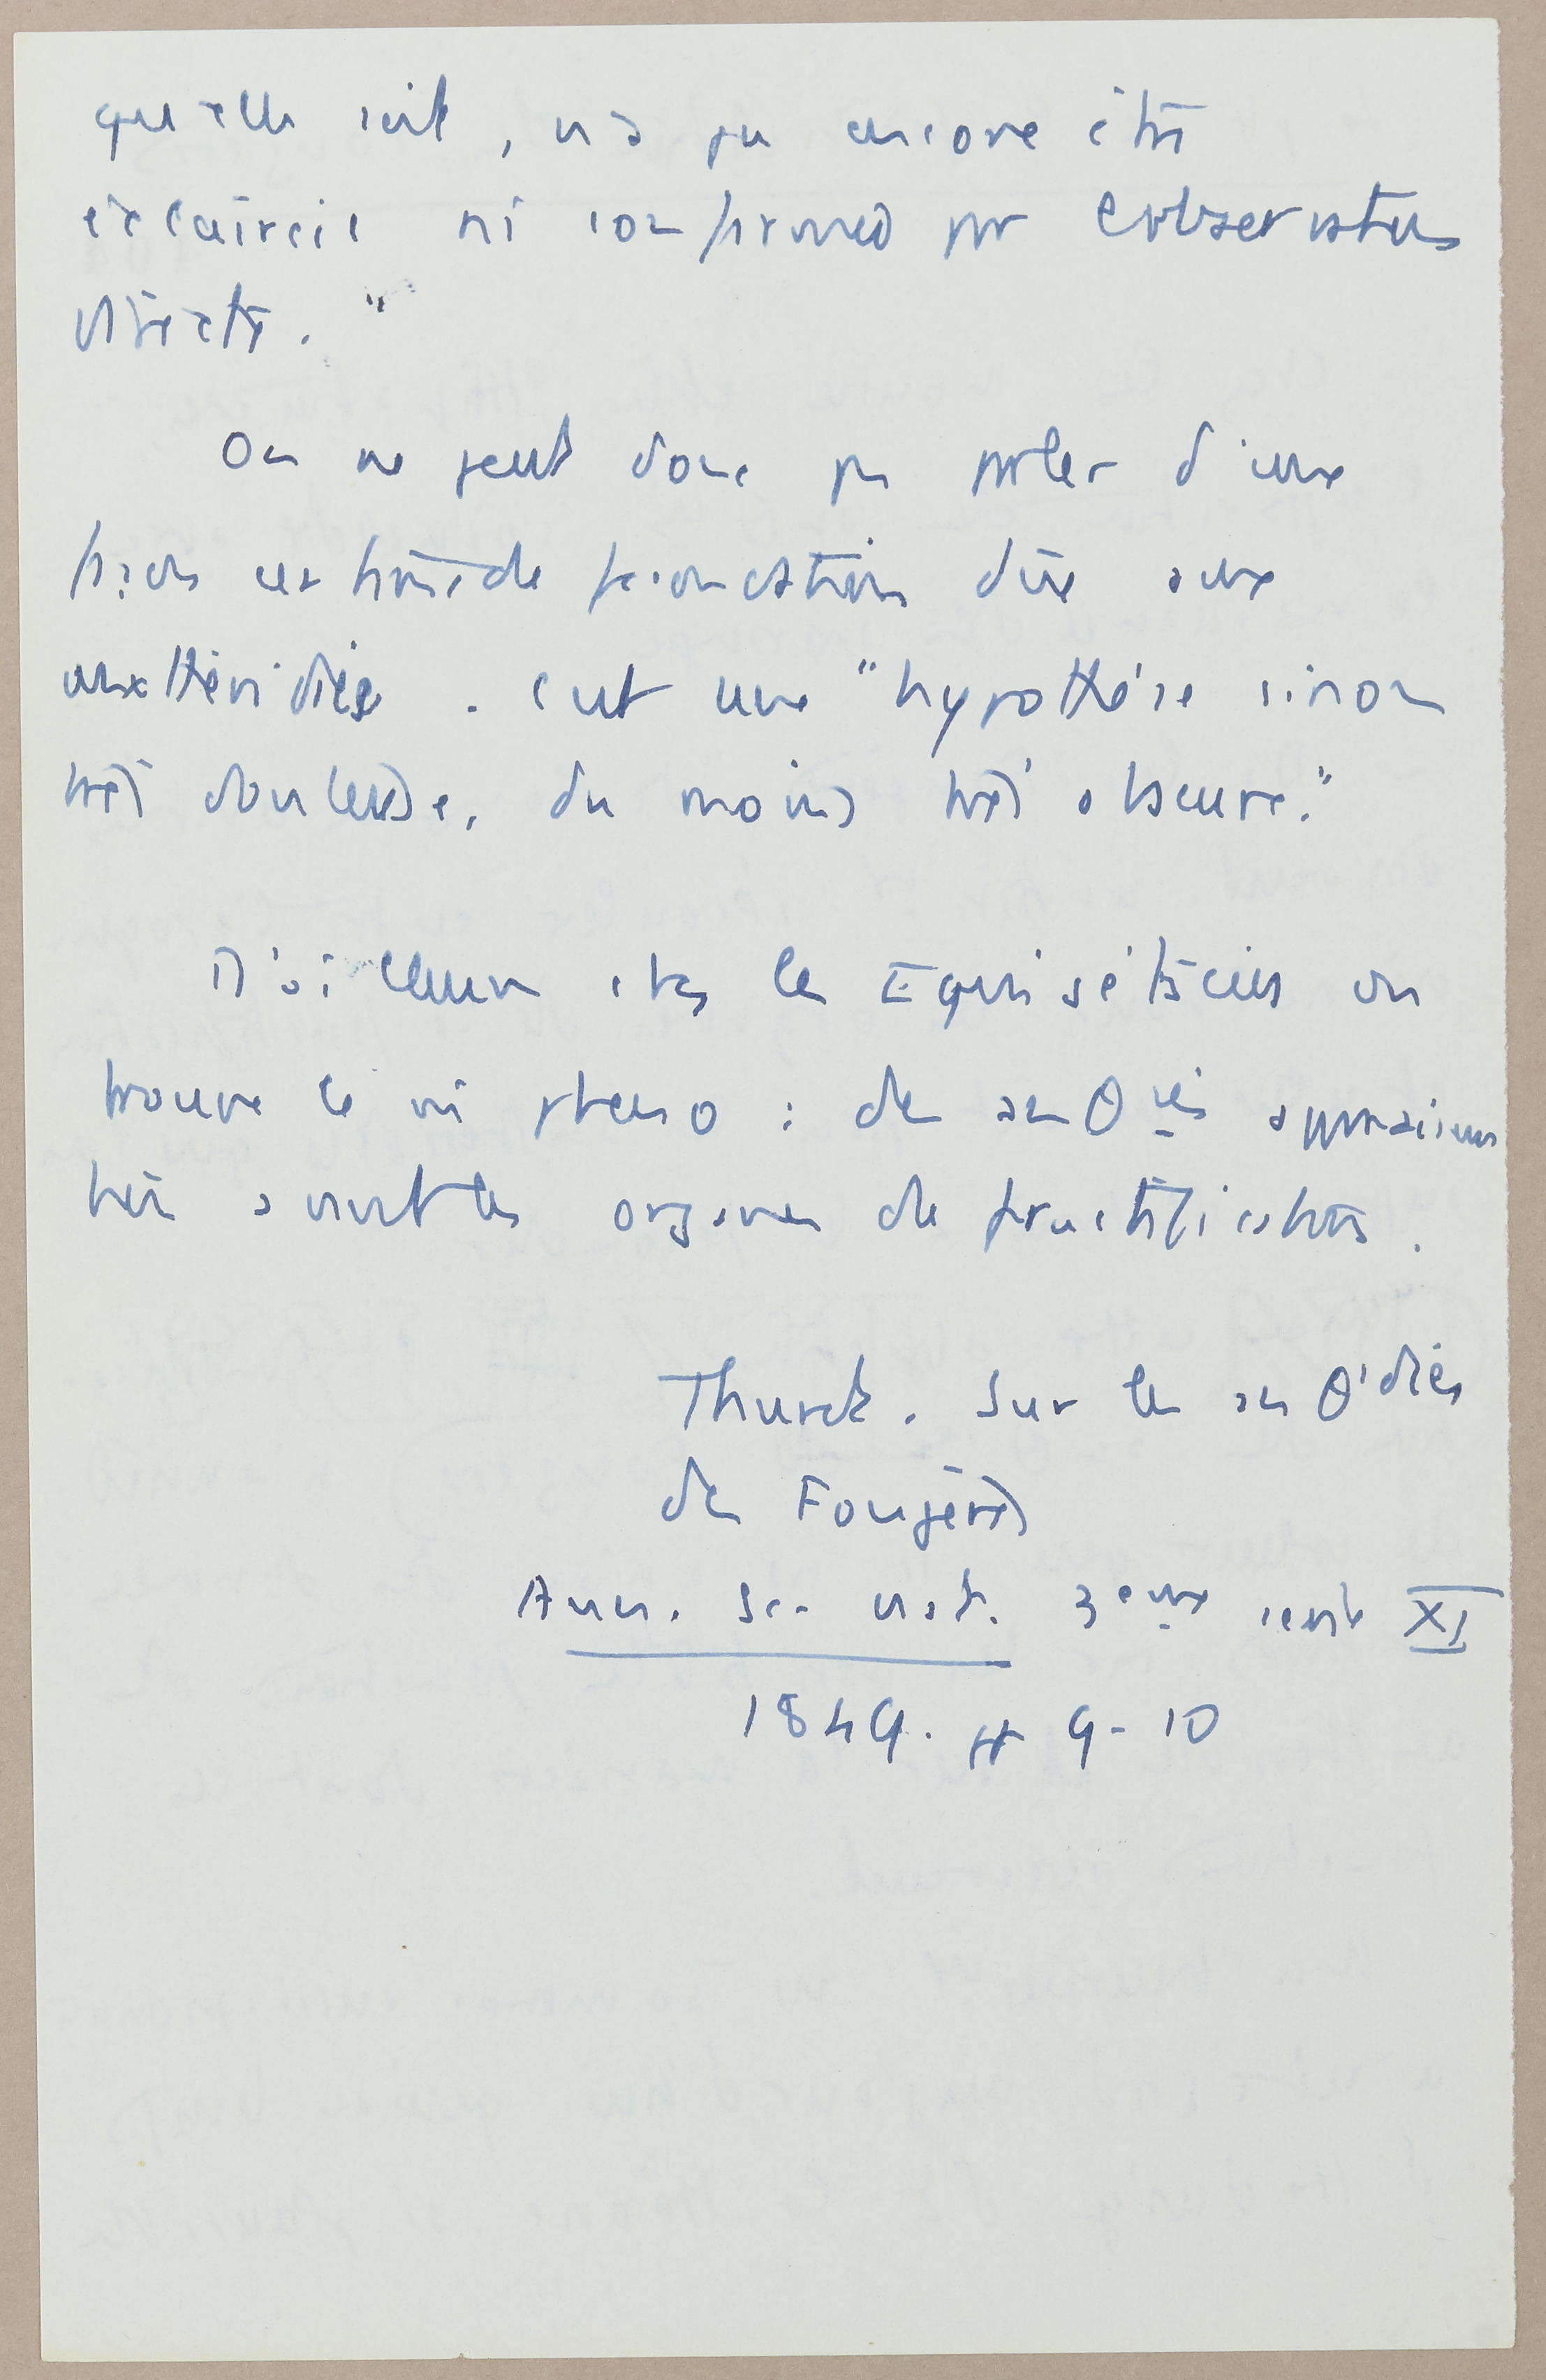 qu'elle soit, n'a pu encore être
éclaircie ni confirmée par l'observation
directe."
On ne peut donc pas parler d'une
façon certaine de fécondation due aux
anthéridies. C'est une "hypothèse sinon
très douteuse, du moins très obscure."
D'ailleurs chez les Equisétacées on
trouve le mê pheno : des an θ dies apparaissent
très avant les organes de fructification.
Thuret. Sur les an θ'dies
des Fougères
Ann. Sc. nat. 3eme serie XI
1849. pp 9-10